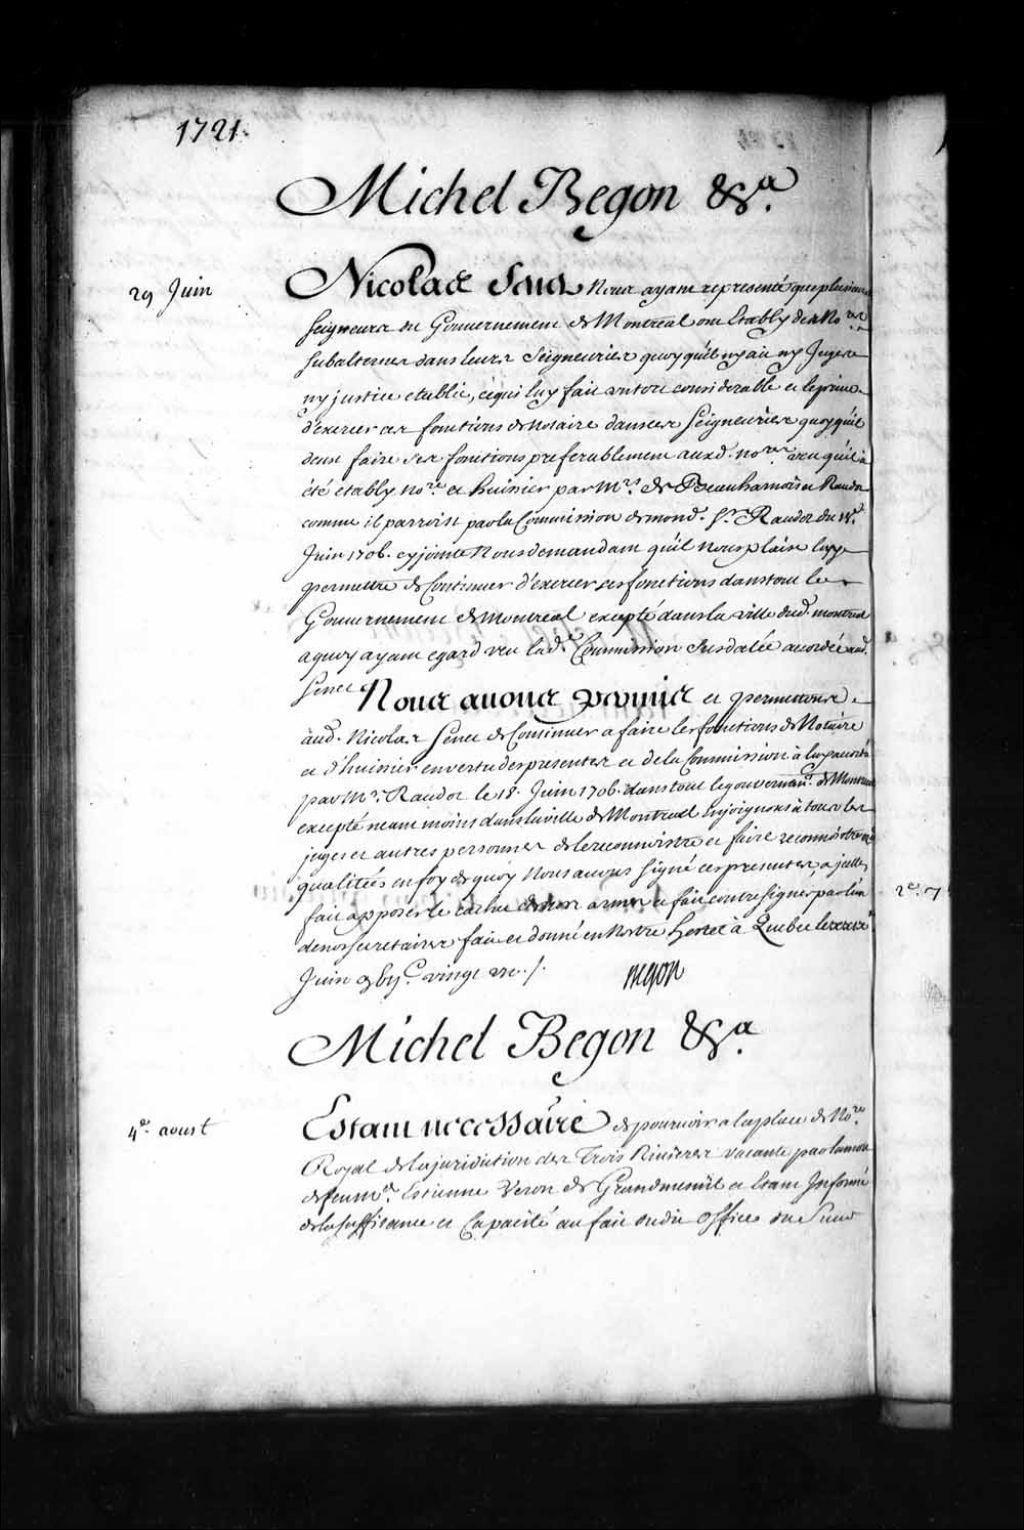 1721.
Michel Begon &a.
29 Juin
Nicolas Senet Nous ayant representé que plusieurs
seigneurs du Gouvernement de Montreal ont Etably des No.res
subalternes dans leurs Seigneuries quoy qu'il ny ait ny Juges
ny justice etablie, ce qui luy fait un tort considerable et le prive
d'exercer ces fonctions de Notaire dans ces Seigneuries quoy qu'il
deut faire ses fonctions preferablement aux d. no.res veu qu'il a
été etably no.re et huissier par M.rs de Beauharnois et Raudot
comme il parroist par la Commission de mond. S.r Raudot du 18.e
Juin 1706. cy jointe Nous demandant qu'il Nous plaise luy
permettre de Continuer d'exercer ses fonctions dans tout le
Gouvernement de Montreal excepté dans la ville dud. montreal
a quoy ayant egard veu lad.e Commission susdatée accordée aud.
Senet Nous avons permis et permettons
aud. Nicolas Senet de Continuer a faire les fonctions de Notaire
et d'huissier en vertu des presentes et de la Commission à luy accordée
par M.r Raudot le 18. Juin 1706. dans tout le gouvernem.t de Montreal
excepté neantmoins dans la ville de Montreal Enjoignons à tous les
juges et autres personnes de le reconnoistre et faire reconnoistre
qualitées en foy de quoy Nous avons signé ces presentes, a jcelles
fait apposer le cachet de nos armes et fait contresigner par l'un
de nos secretaires fait et donné en Nostre hostel à Quebec le
Juin vingt un ./.
Begon
Michel Begon &a.
4e. aoust
Estant necessaire de pourvoir a la place de No.re
Royal de la jurisdiction des Trois Rivieres vacante par la mort
de feu m.e Estienne Veron de Grandmesnil et Etant Informé
de la suffisance et Capacité au fait dudit office du Sieur
2e. 7